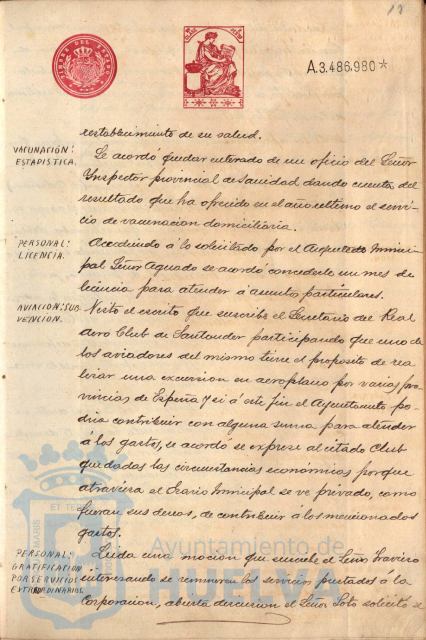 12
TIMBRE DEL ESTADO
A.3.486.980*
restablecimiento de su salud.
VACUNACIÓN:
ESTADISTICA.
Se acordó quedar enterado de un oficio del Señor
Inspector provincial de Sanidad dando cuenta del
resultado que ha ofrecido en el año ultimo el servi-
cio de vacunacion domiciliaria.
PERSONAL:
LICENCIA.
Accediendo á lo solicitado por el Arquitecto Munici-
pal Señor Aguado se acordó concederle un mes de
licencia para atender á asuntos particulares.
AVIACION: SUB-
VENCION.
Visto el escrito que suscribe el Secretario del Real
Aero Club de Santander participando que uno de
los aviadores del mismo tiene el proposito de rea-
lizar una excursion en aeroplano por varias pro-
vincias de España y si á este fin el Ayuntamto po-
dria contribuir con alguna suma para atender
á los gastos, se acordó se exprese al citado Club
que dadas las circunstancias económicas porque
atraviesa el Erario Municipal se ve privado, como
fueran sus deseos, de contribuir á los mencionados
gastos.
PERSONAL:
GRATIFICACION
POR SERVICIOS
EXTRAORDINARIOS.
Leida una mocion que suscribe el Señor Traviero
interesando se remuneren los servicios prestados á la
Corporacion, abierta discusion el Señor Soto solicitó se
Ayuntamiento de
HUELVA